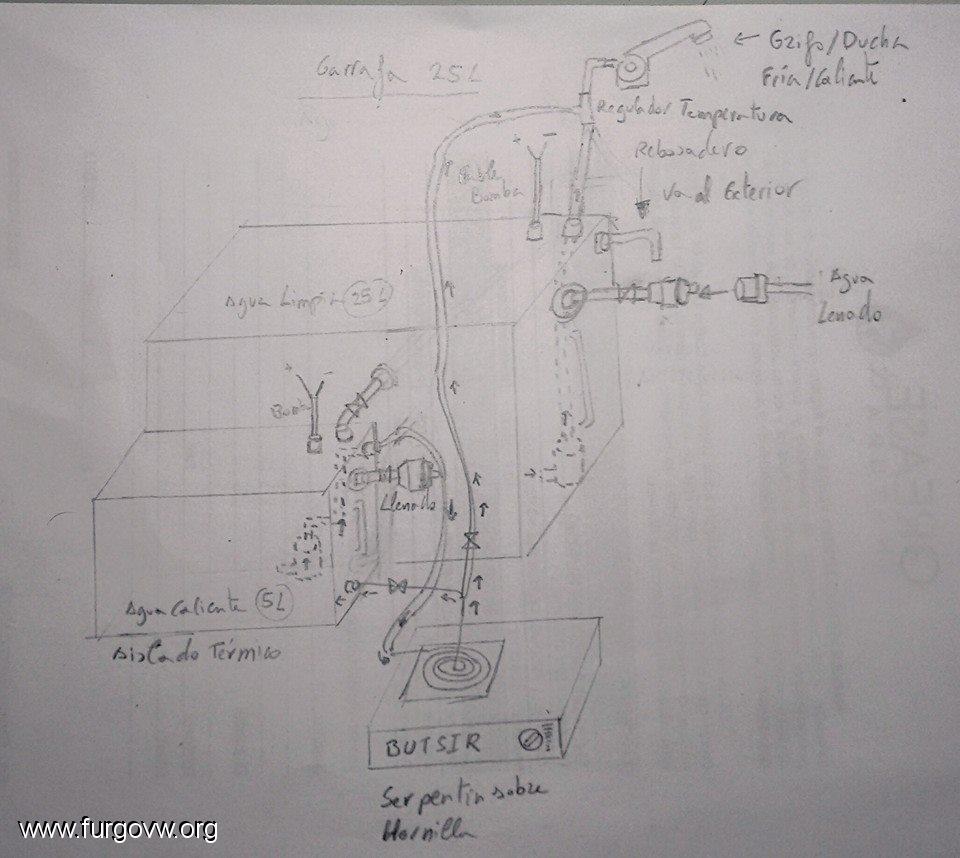 Garrafa 25L
Grifo/Ducha
Fria/Caliente
Regulador Temperatura
Rebosadero
Va al Exterior
Cable
Bomba
+ -
Agua Limpia 25L
Agua
Llenado
+ -
Bomba
Llenado
Agua Caliente 5L
Aislado Térmico
BUTSIR
Serpentin sobre
Hornilla
www.furgovw.org